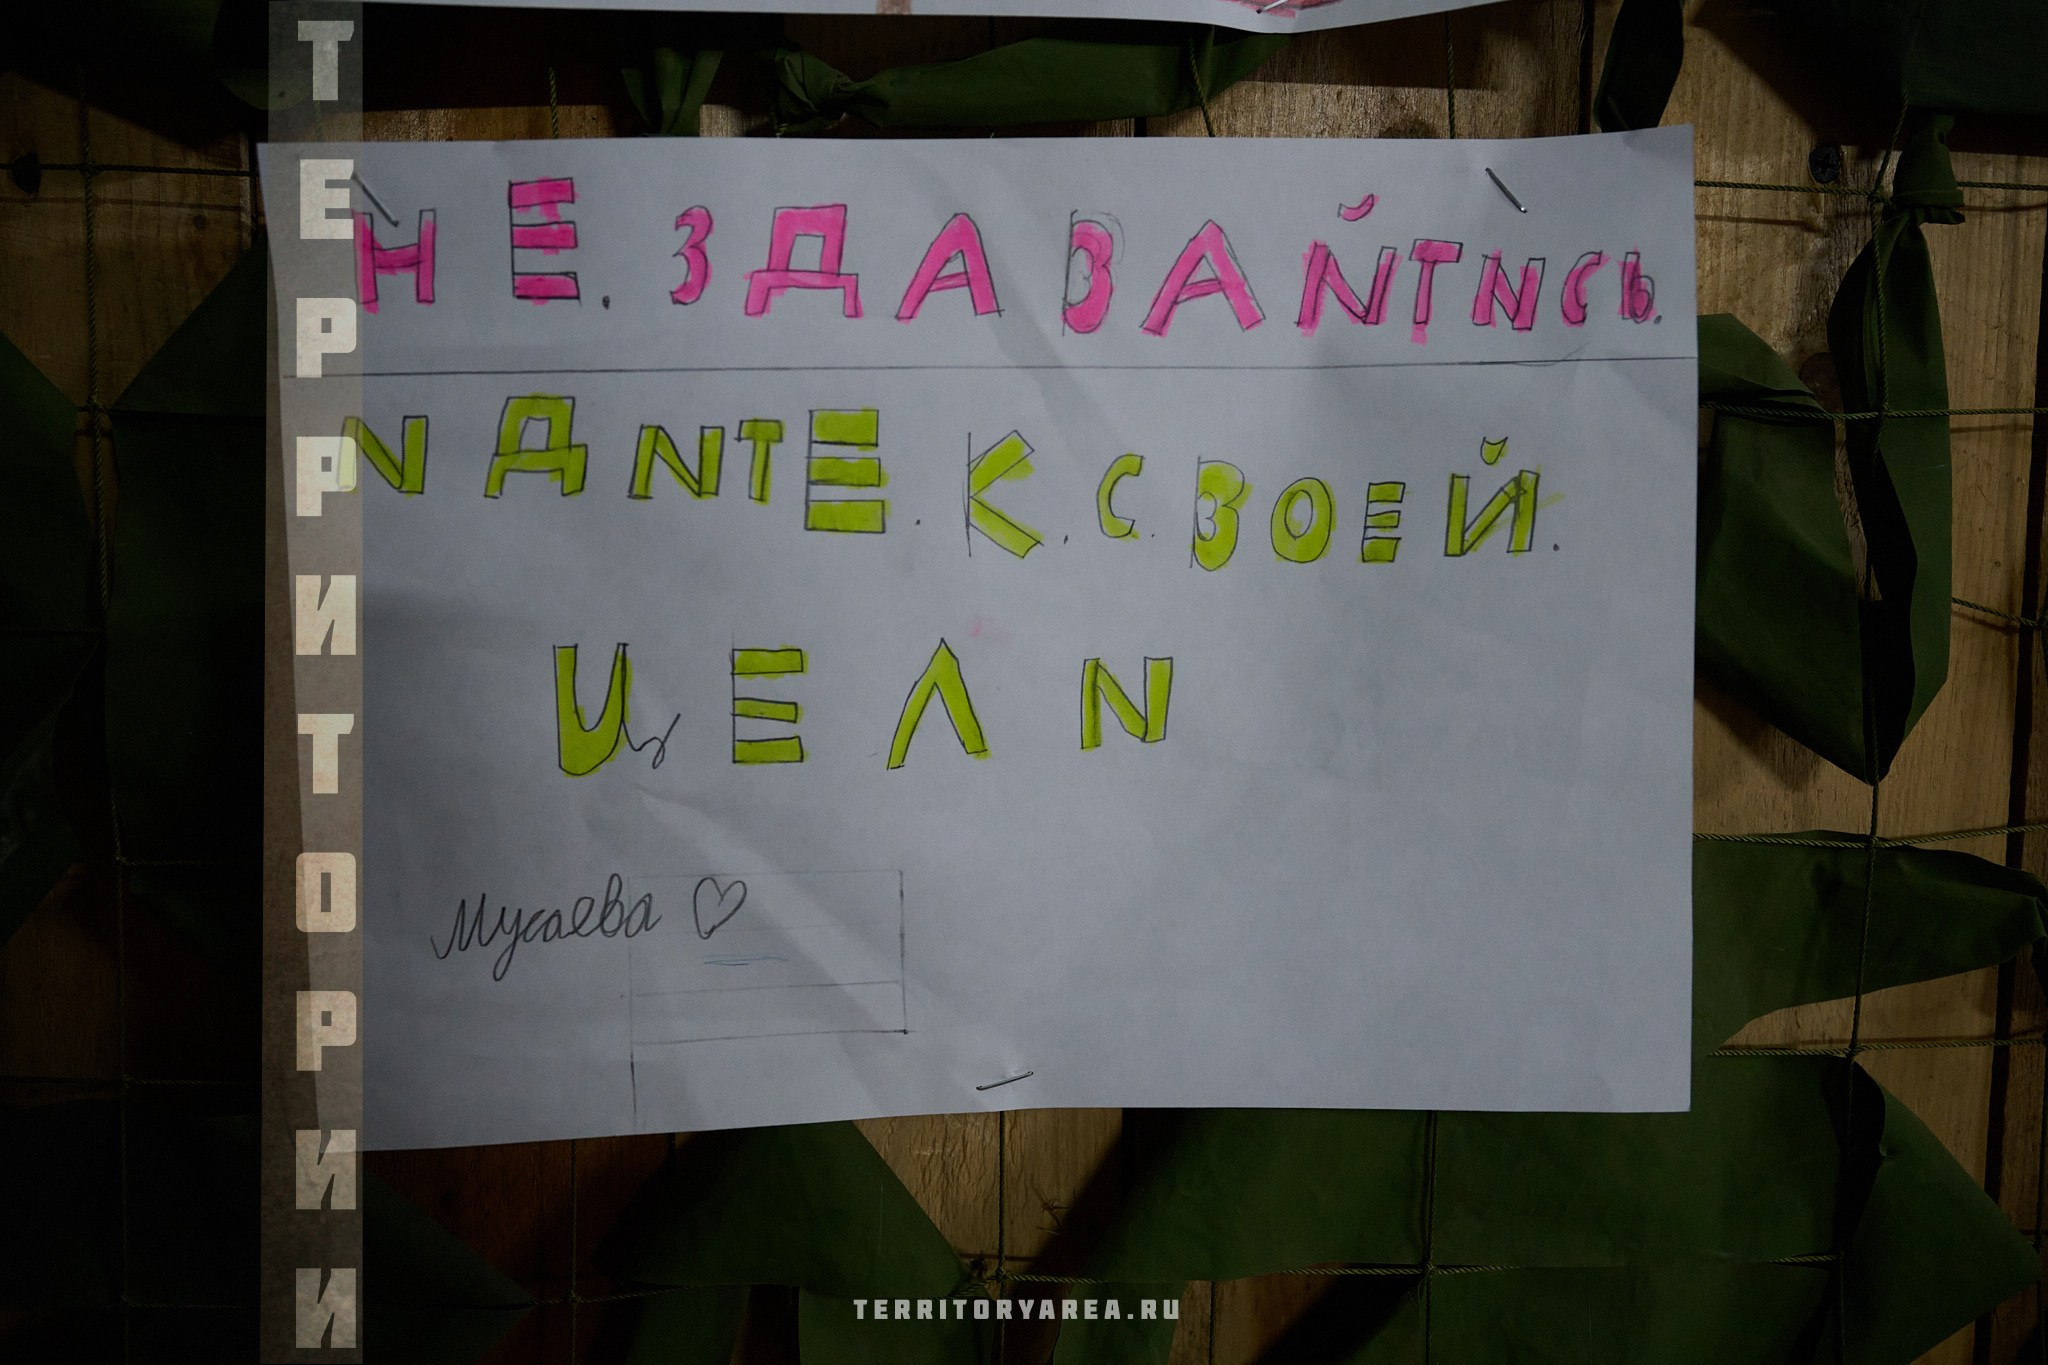 ТЕРРИТОРИИ
НЕ. ЗДАВАЙТИСЬ.
ИДИТЕ. К. С. ВОЕЙ.
ЦЕЛИ
Мусаева ♡
TERRITORYAREA.RU